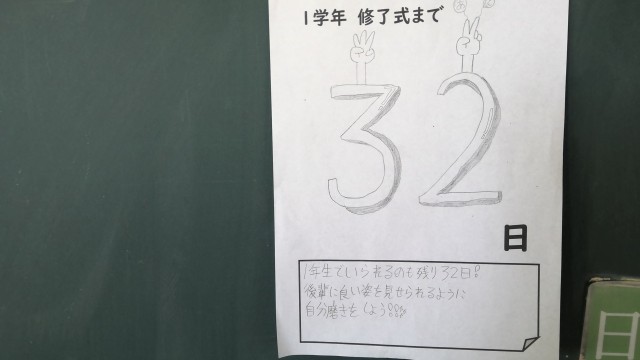 1学年 修了式まで
あと
32
日
1年生でいられるのも残り32日!!
後輩に良い姿を見せられるように
自分磨きをしよう!!!!